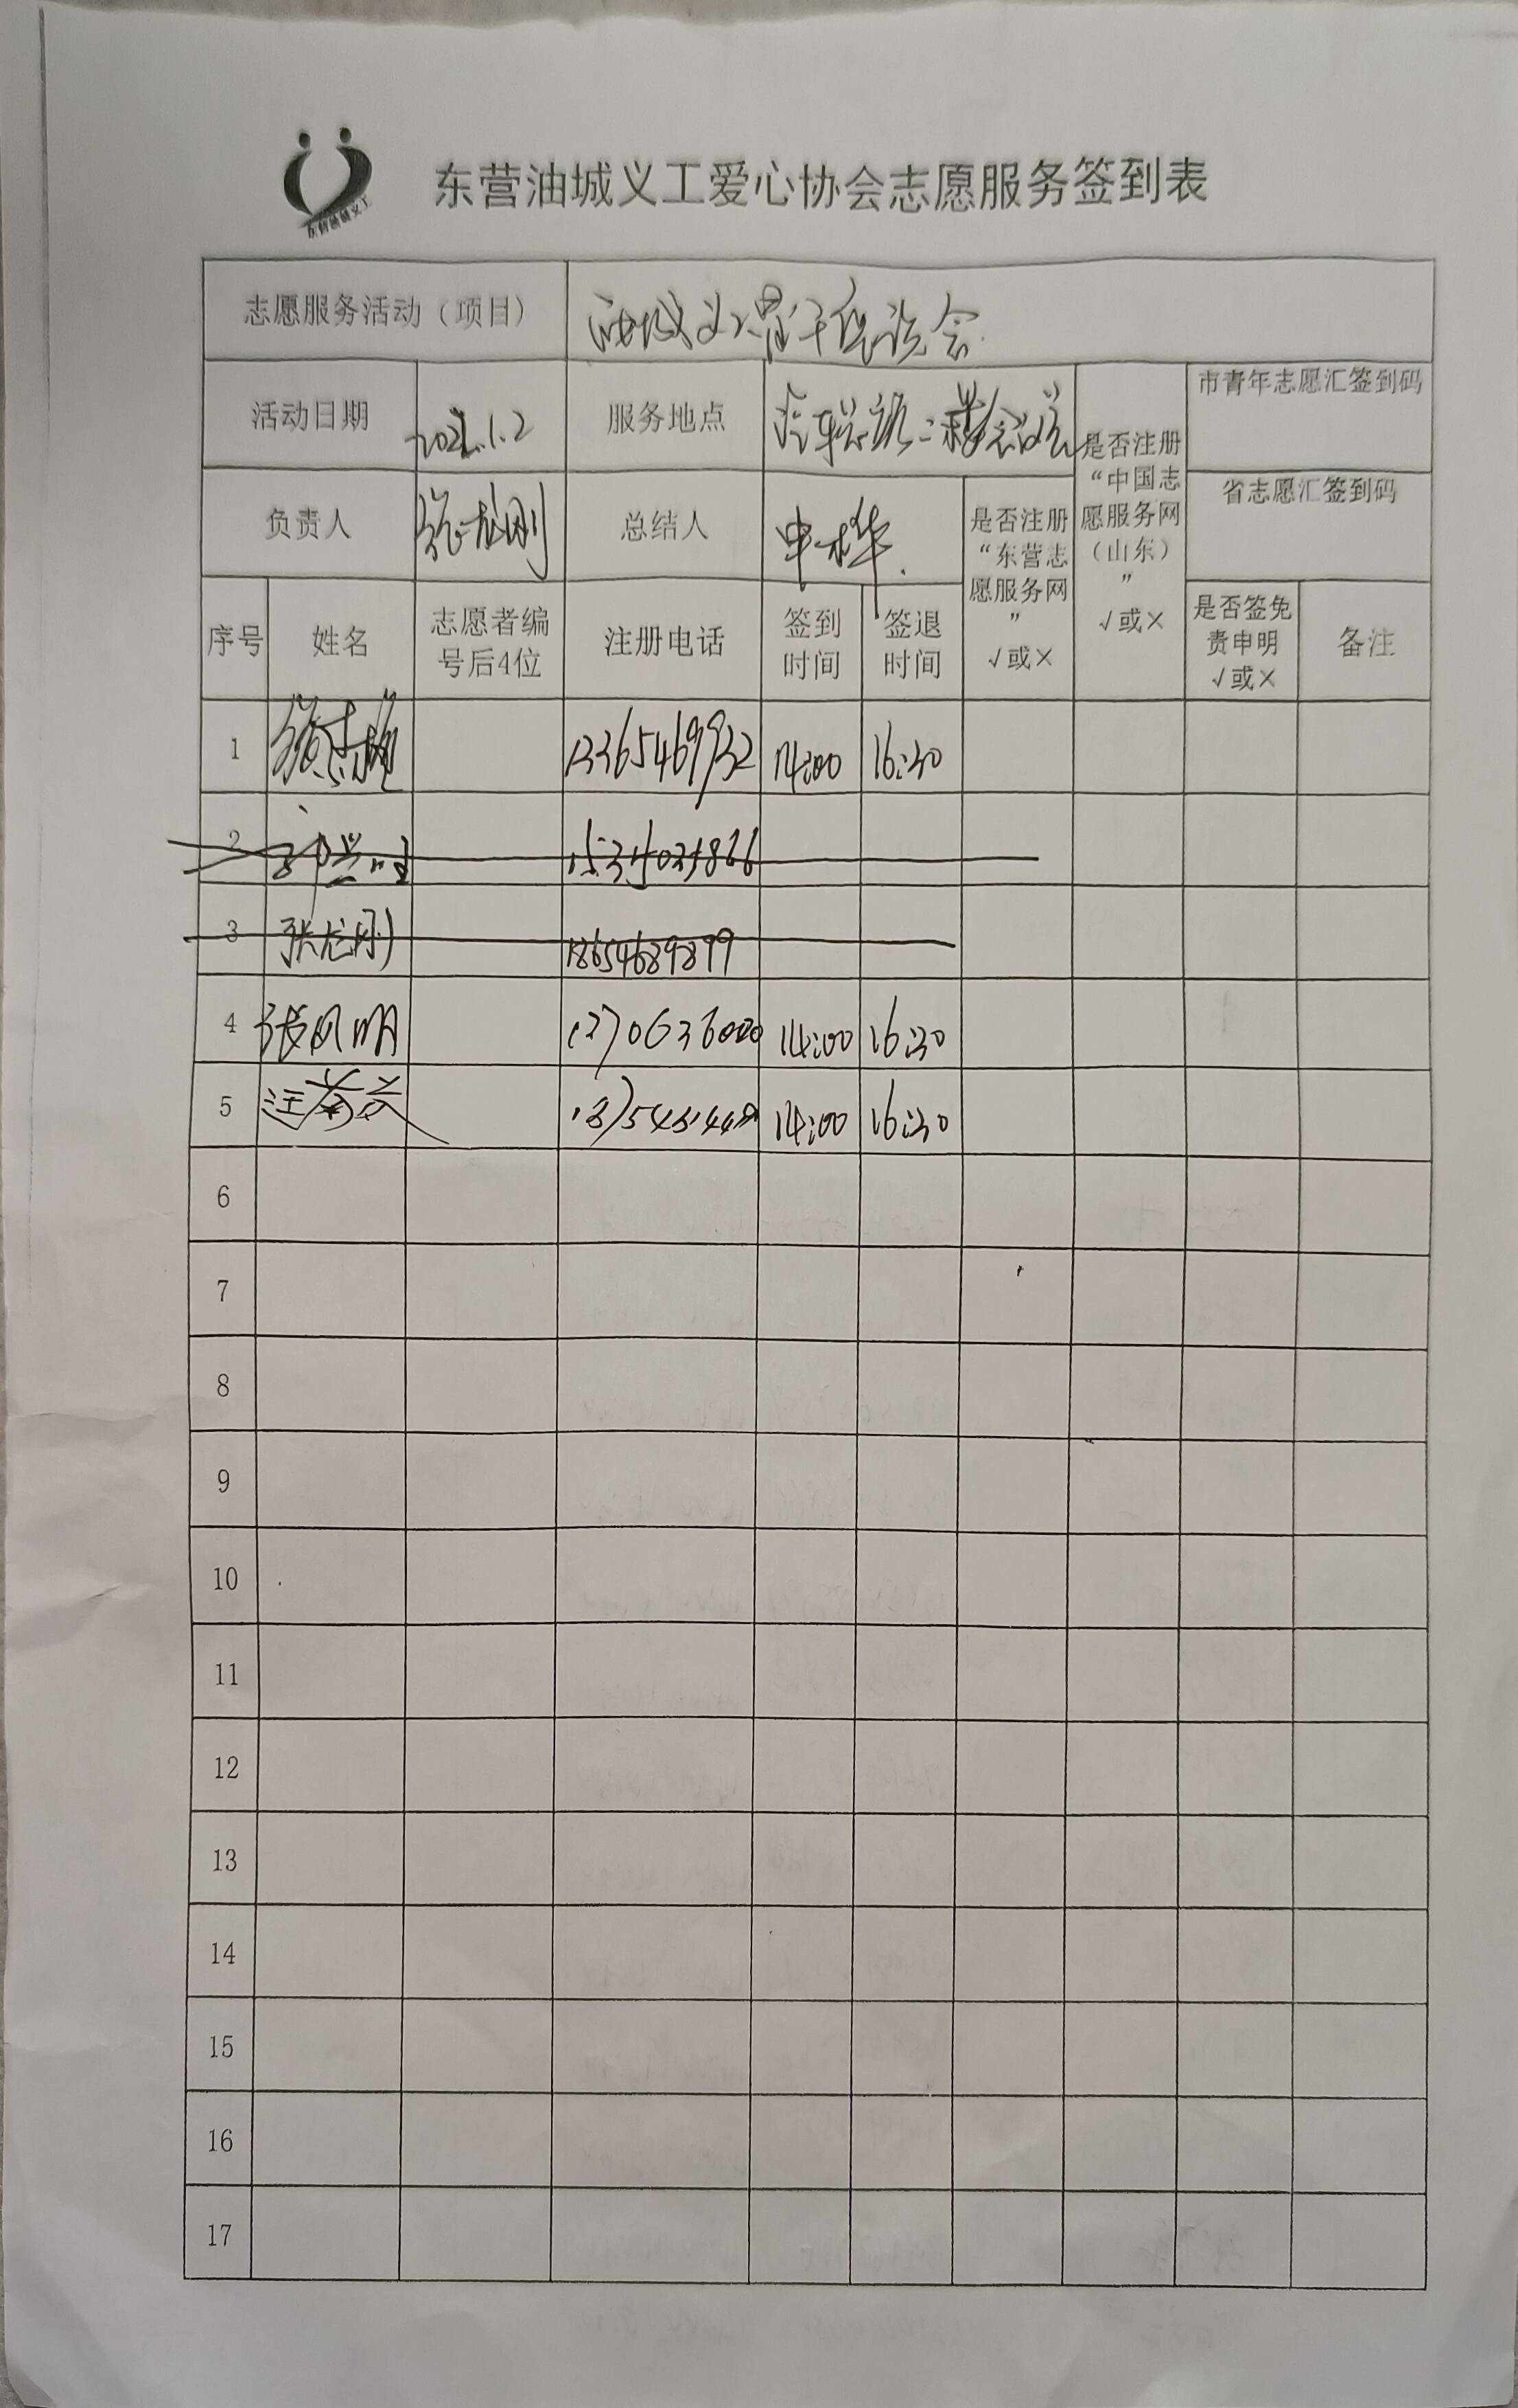 东营油城义工
东营油城义工爱心协会志愿服务签到表
志愿服务活动（项目） 油城义工骨干座谈会
活动日期 服务地点 二楼会议室
市青年志愿汇签到码
是否注册“中国志愿服务网（山东）” √或×
省志愿汇签到码
负责人 张龙刚 总结人 申华
是否注册“东营志愿服务网” √或×
序号 姓名 志愿者编号后4位 注册电话 签到时间 签退时间 是否签免责申明 √或× 备注
1 13365469932 14:00 16:30
2
3 张龙刚 18654689899
4 张凤明 14:00 16:30
5 汪菊芬 14:00 16:30
6
7
8
9
10
11
12
13
14
15
16
17